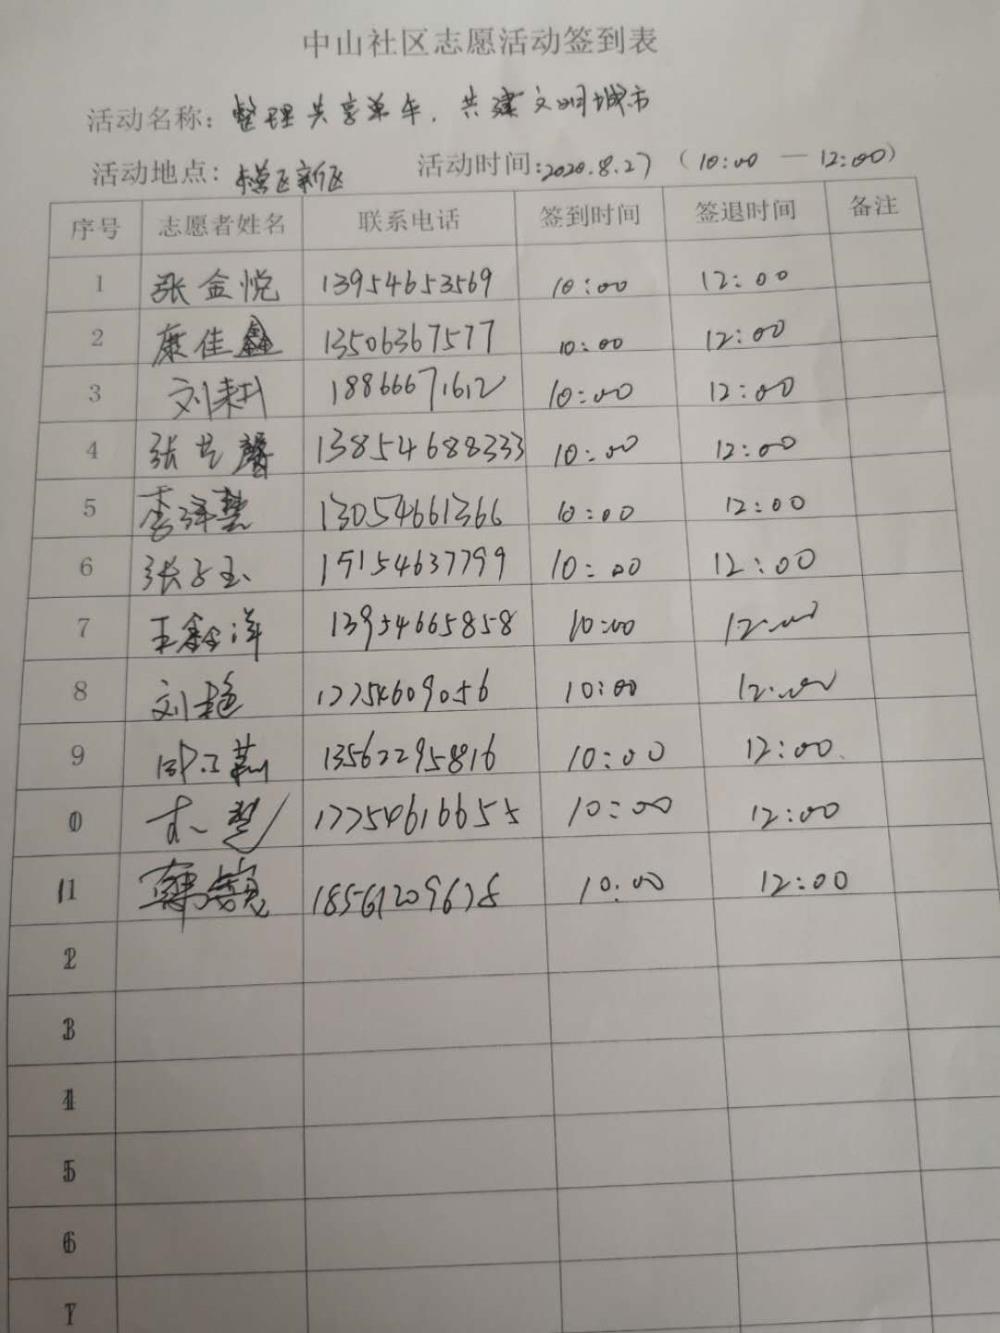 中山社区志愿活动签到表
活动名称：整理共享单车，共建文明城市
活动地点： 活动时间：2020.8.27（10:00—12:00）
序号 志愿者姓名 联系电话 签到时间 签退时间 备注
1 张金悦 13954653569 10:00 12:00
2 康佳鑫 13506367577 10:00 12:00
3 18866671612 10:00 12:00
4 13854688333 10:00 12:00
5 13054661366 10:00 12:00
6 张子玉 15154637799 10:00 12:00
7 王鑫洋 13954665858 10:00 12:00
8 刘艳 17754609056 10:00 12:00
9 13562295816 10:00 12:00
0 17754616655 10:00 12:00
11 10:00 12:00
2
3
4
5
6
7